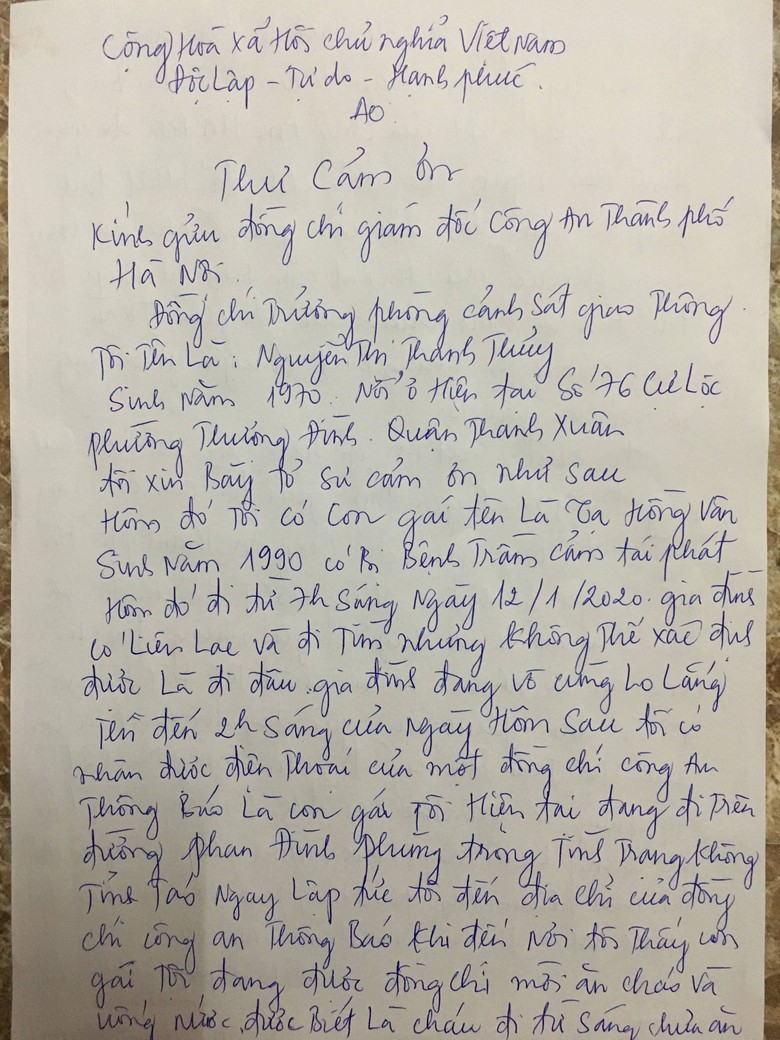 Cộng Hoà xã Hôi chủ nghĩa Việt Nam
Độc Lập - Tự do - Hạnh phúc.
Thư Cảm ơn
Kính gửu đồng chí giám đốc Công An Thành phố
Hà Nôi.
Đồng chí Trưởng phòng cảnh Sát giao Thông.
Tôi Tên Là : Nguyễn Thi Thanh Thủy
Sinh Năm 1970. Nơi ở Hiện tai Số 76 Cự Lộc
phường Thương Đình. Quận Thanh Xuân
tôi xin Bày tỏ sư cảm ơn như sau
Hôm đó Tôi có Con gái tên Là Tạ Hồng Vân
Sinh Năm 1990 có Bi Bệnh Trầm cảm tái phát
Hôm đó đi từ 7h Sáng Ngày 12/1/2020. gia đình
có Liên Lac và đi Tìm nhưng Không Thể xác định
được Là đi đâu. gia đình đang vô cùng Lo Lắng
đến 2h Sáng của Ngày Hôm Sau tôi có
nhân được điên Thoai của một đồng chí công An
Thông Báo Là con gái Tôi Hiện tai đang đi Trên
đường phan Đình phùng trong Tình Trang Không
Tỉnh Táo Ngay Lập tức tôi đến đia chỉ của đồng
chí công an Thông Báo Khi đến Nơi tôi Thấy con
gái Tôi đang được đồng chí mời ăn cháo và
uống nước, được Biết Là cháu đi từ Sáng chưa ăn